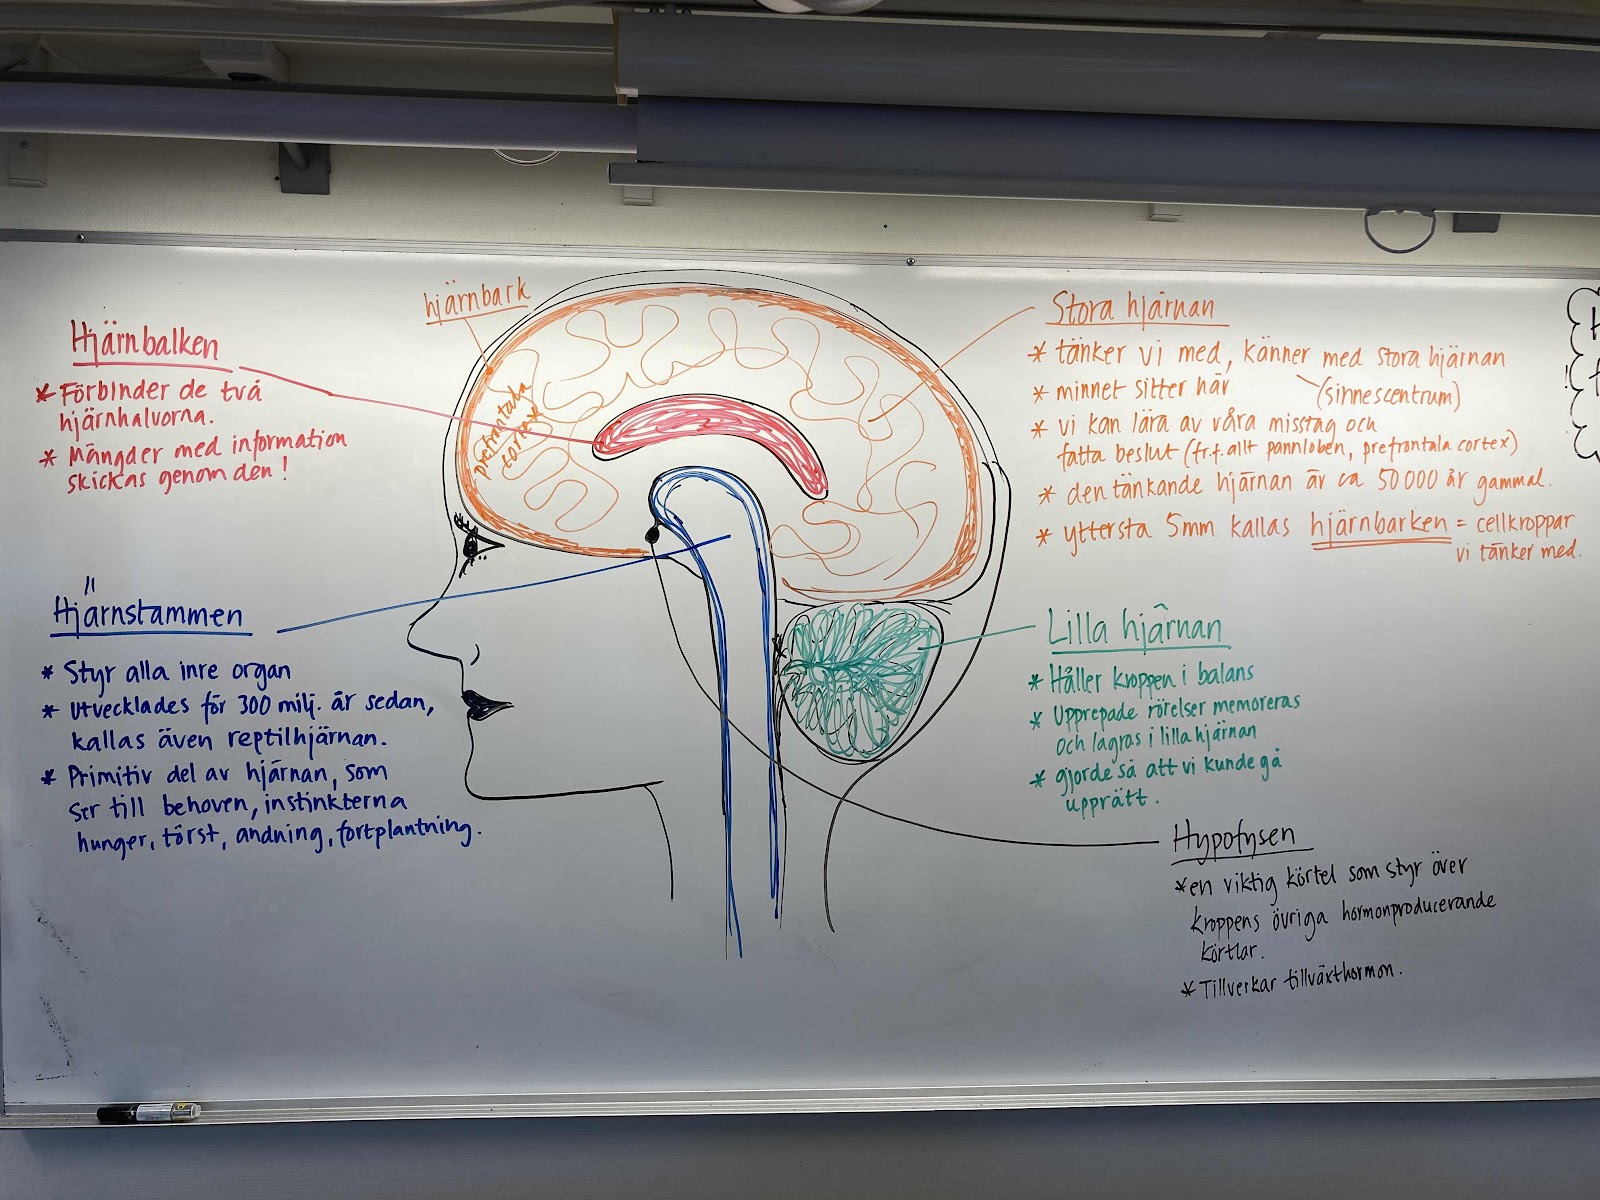 hjärnbark
Hjärnbalken
* Förbinder de två
hjärnhalvorna.
* Mängder med information
skickas genom den!
prefrontala
cortex
Hjärnstammen
* Styr alla inre organ
* Utvecklades för 300 milj. år sedan,
kallas även reptilhjärnan.
* Primitiv del av hjärnan, som
ser till behoven, instinkterna
hunger, törst, andning, fortplantning.
Stora hjärnan
* tänker vi med, känner med stora hjärnan
* minnet sitter här
(sinnescentrum)
* vi kan lära av våra misstag och
fatta beslut (frf.allt pannloben, prefrontala cortex)
* den tänkande hjärnan är ca 50 000 år gammal.
* yttersta 5mm kallas hjärnbarken = cellkroppar
vi tänker med.
Lilla hjärnan
* Håller kroppen i balans
* Upprepade rörelser memoreras
och lagras i lilla hjärnan
* gjorde så att vi kunde gå
upprätt.
Hypofysen
* en viktig körtel som styr över
kroppens övriga hormonproducerande
körtlar.
* Tillverkar tillväxthormon.